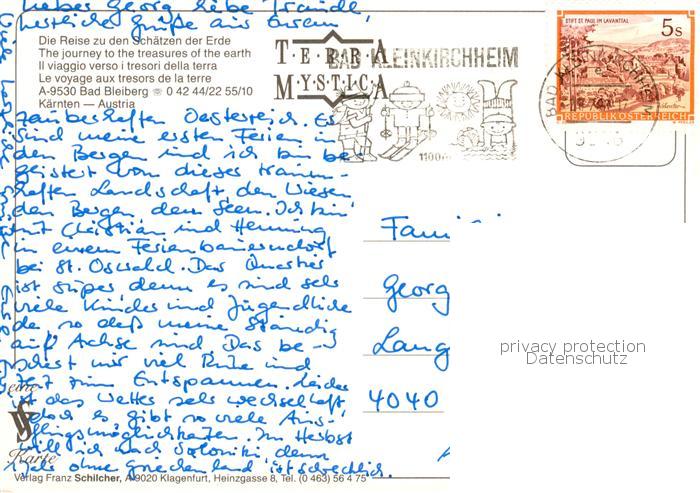 lieber Georg liebe Traudl
herzliche Grüße aus Eurem
Die Reise zu den Schätzen der Erde
The journey to the treasures of the earth
Il viaggio verso i tresori della terra
Le voyage aux tresors de la terre
A-9530 Bad Bleiberg ☏ 0 42 44/22 55/10
Kärnten — Austria
TERRA
MYSTICA
BAD KLEINKIRCHHEIM
1100
STIFT ST. PAUL IM LAVANTTAL
5s
REPUBLIK ÖSTERREICH
BAD KLEINKIRCHHEIM
zauberhaften Oesterreich. Es
sind meine ersten Ferien in
den Bergen und ich bin be-
geistert von dieser traum-
haften Landschaft, den Wiesen
den Bergen, dem Seen. Ich bin
mit Christian und Henning
in einem Ferienbauerndorf
bei St. Oswald. Das Quartier
ist super denn es sind sehr
viele Kinder und Jugendliche
da so daß meine ständig
auf Achse sind. Das be-
schert mir viel Ruhe und
Zeit zum Entspannen. Leider
ist das Wetter sehr wechselhaft
doch es gibt so viele Aus-
flugsmöglichkeiten. Im Herbst
will ich nach Soloniki, denn
Jahr ohne Griechenland ist schrecklich.
Fami
Georg
Lang
4040
privacy protection
Datenschutz
eine
Karte
Verlag Franz Schilcher, A-9020 Klagenfurt, Heinzgasse 8, Tel. (0 463) 56 4 75